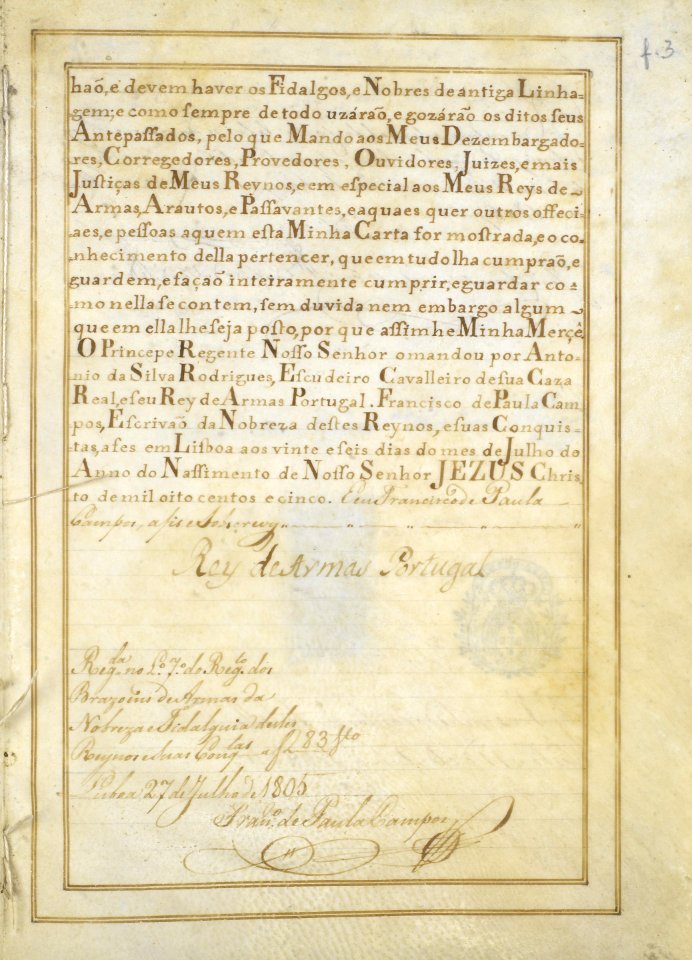 f. 3
haõ, e devem haver os Fidalgos, e Nobres de antiga Linha=
gem; e como sempre de todo uzáraõ, e gozáraõ os ditos seus
Antepassados, pelo que Mando aos Meus Dezembargado=
res, Corregedores, Provedores, Ouvidores, Juizes, e mais
Justiças de Meus Reynos, e em especial aos Meus Reys de
Armas, Arautos, e Passavantes, e aquaes quer outros offeci=
aes, e pessoas a quem esta Minha Carta for mostrada, e o co=
nhecimento della pertencer, que em tudo lha cumpraõ, e
guardem, e façaõ inteiramente cumprir, e guardar co=
mo nella se contem, sem duvida nem embargo algum
que em ella lhe seja posto, por que assim he Minha Merçê.
O Princepe Regente Nosso Senhor o mandou por Anto=
nio da Silva Rodrigues, Escudeiro Cavalleiro de sua Caza
Real, e seu Rey de Armas Portugal. Francisco de Paula Cam
pos, Escrivaõ da Nobreza destes Reynos, e suas Conquis=
tas, a fes em Lisboa aos vinte e seis dias do mes de Julho do
Anno do Nassimento de Nosso Senhor JEZUS Chris=
to de mil oito centos e cinco. E eu Francisco de Paula
Campos, a fis e sobscrevy
Rey de Armas Portugal
Reg.da no L.o 7.o do Reg.to dos
Brazoẽns de Armas da
Nobreza e Fidalguia destes
Reynos e suas Conq.tas a f 83
Lisboa 27 de Julho de 1805
Fran.co de Paula Campos